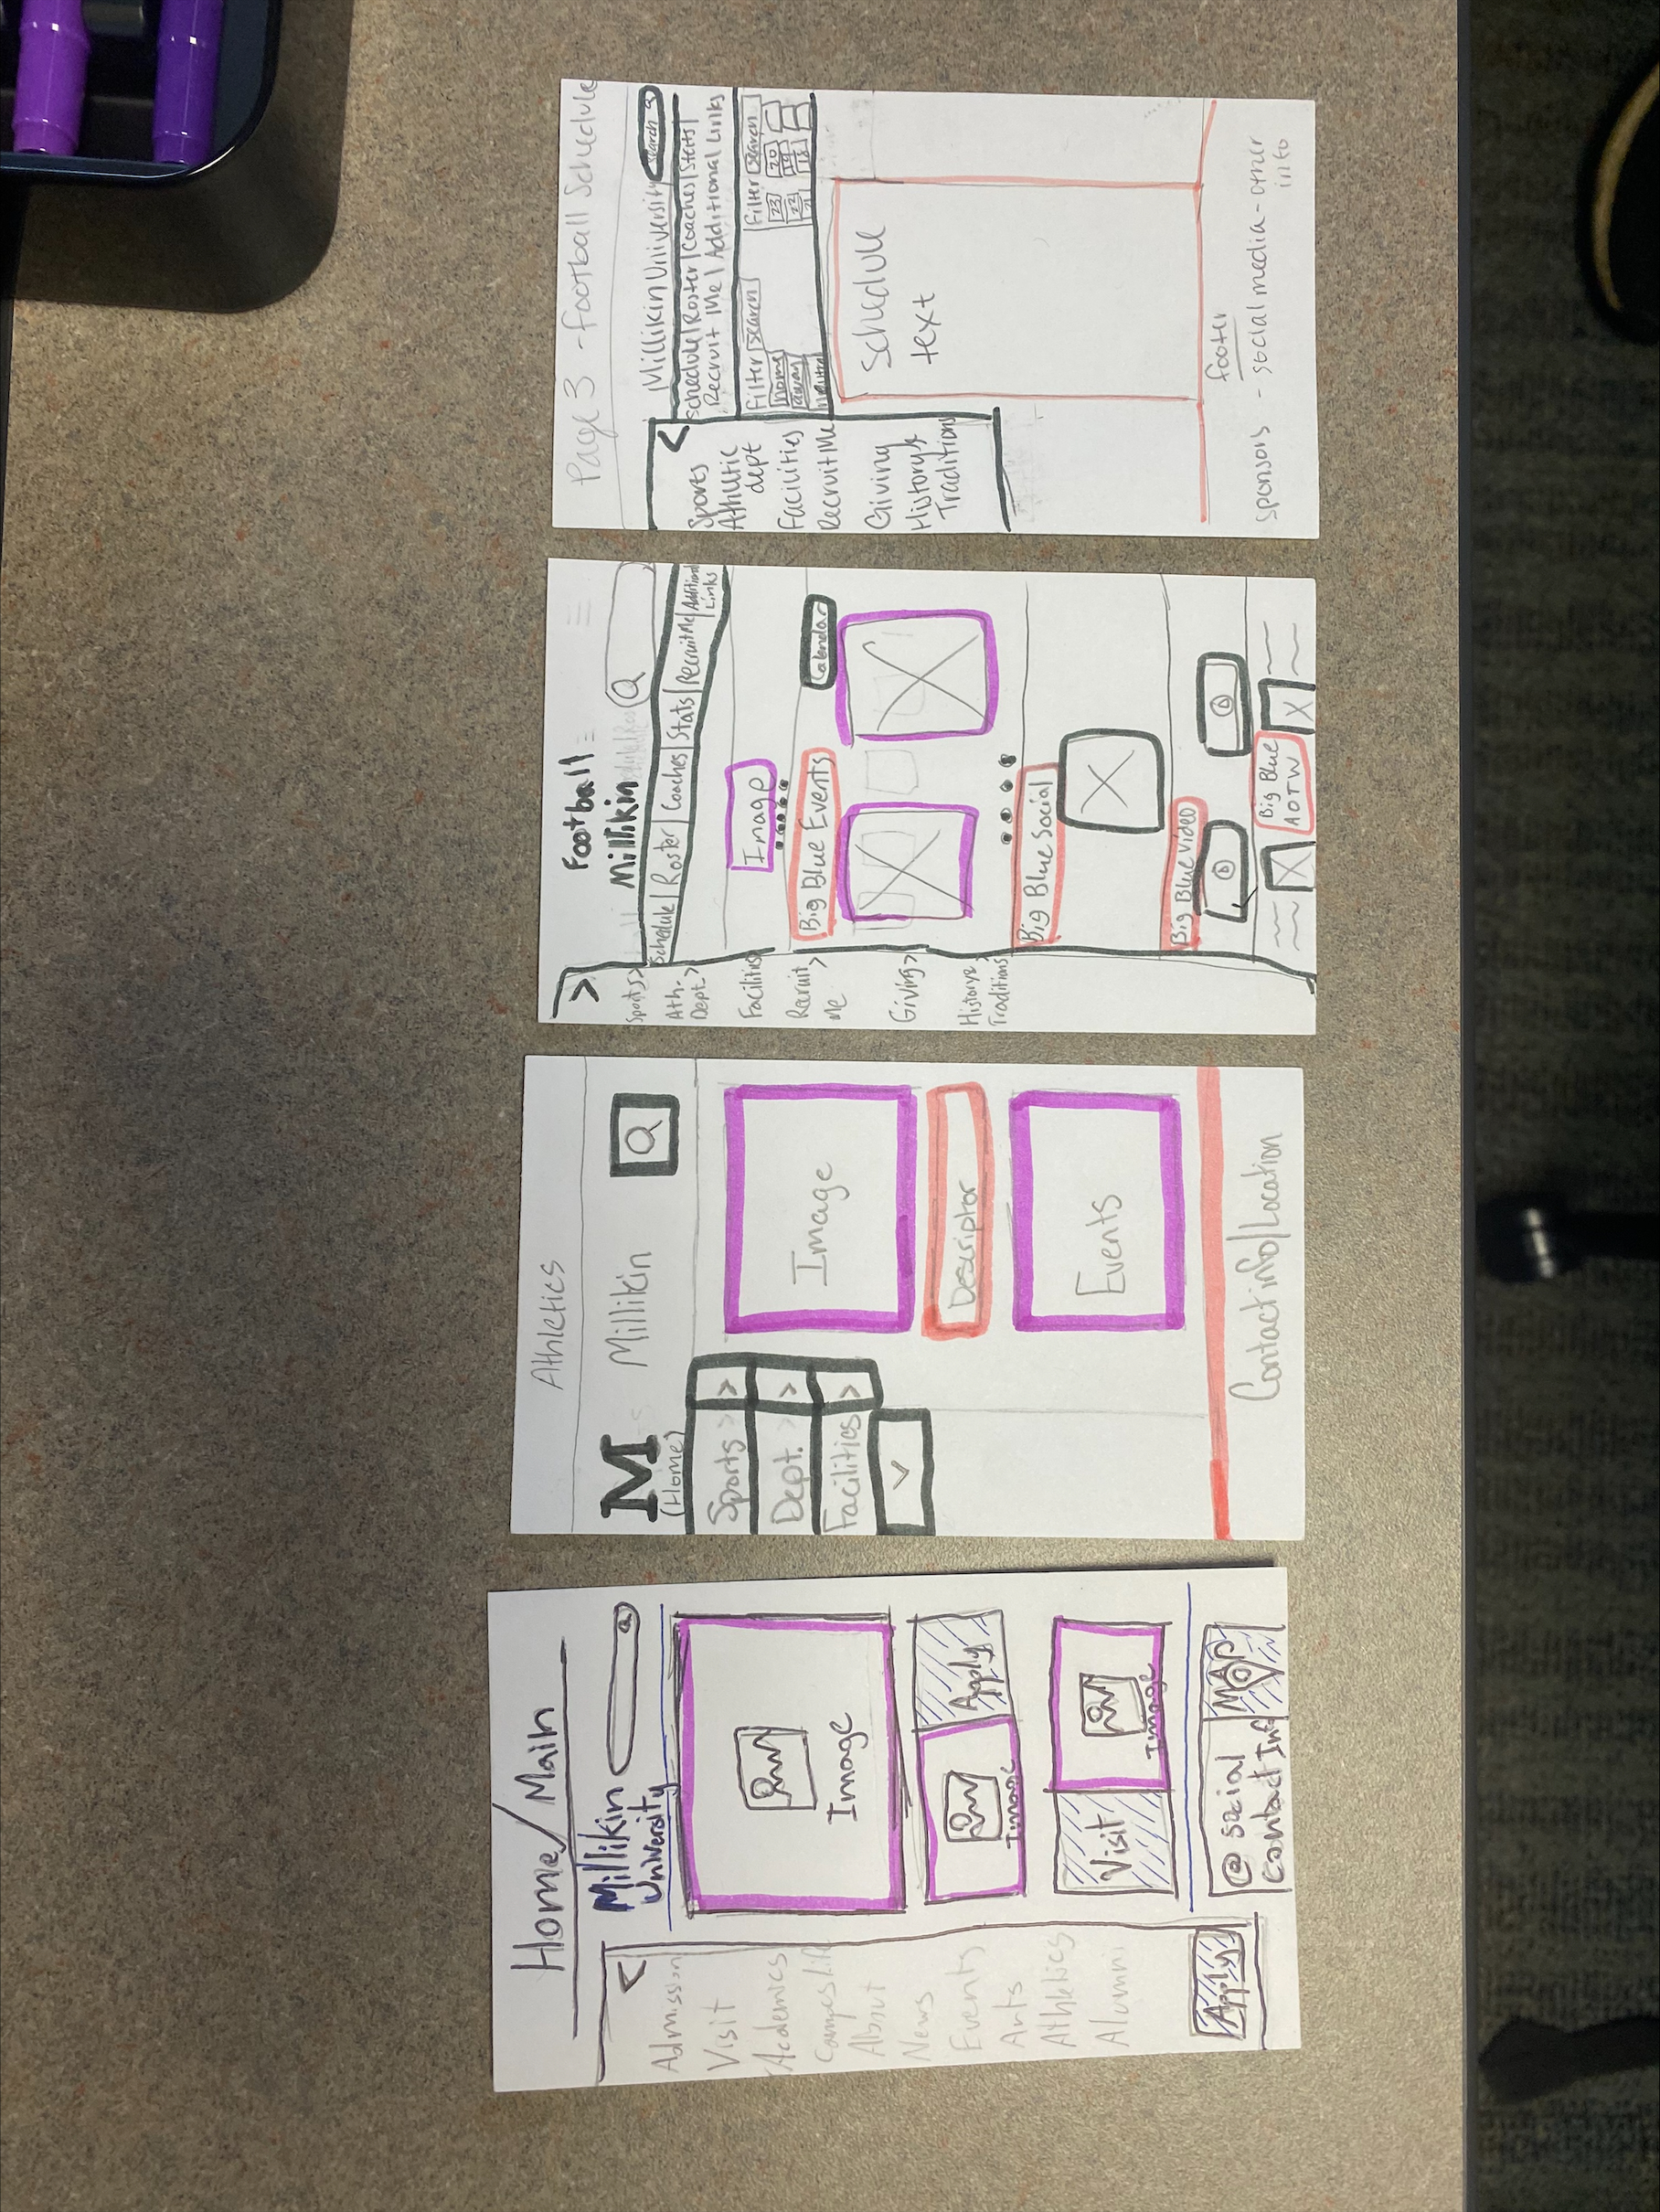 Home/Main
Millikin
University
Admission
Visit
Academics
Campus Life
About
News
Events
Arts
Athletics
Alumni
Apply
Image
Image
Apply
Visit
Image
@ social
Contact Inf
MAP
Athletics
M
(Home)
Millikin
Sports >
Dept. >
Facilities >
Image
Descriptor
Events
Contact info/Location
Football
Millikin
Schedule | Roster | Coaches | Stats | Recruit Me | Additional
Links
Sports >
Ath.
Dept. >
Facilities
Recruit >
Me
Giving >
History &
Traditions
Image
Big Blue Events
Calendar
Big Blue Social
Big Blue Video
Big Blue
AOTW
Page 3 - Football Schedule
Millikin University
search
Schedule | Roster | Coaches | Stats |
Recruit Me | Additional Links
Sports
Athletic
dept
Facilities
Recruit Me
Giving
History &
Traditions
Filter search
home
away
neutral
Filter search
23 20
22 19
21 18
Schedule
text
footer
sponsors - social media - other
info